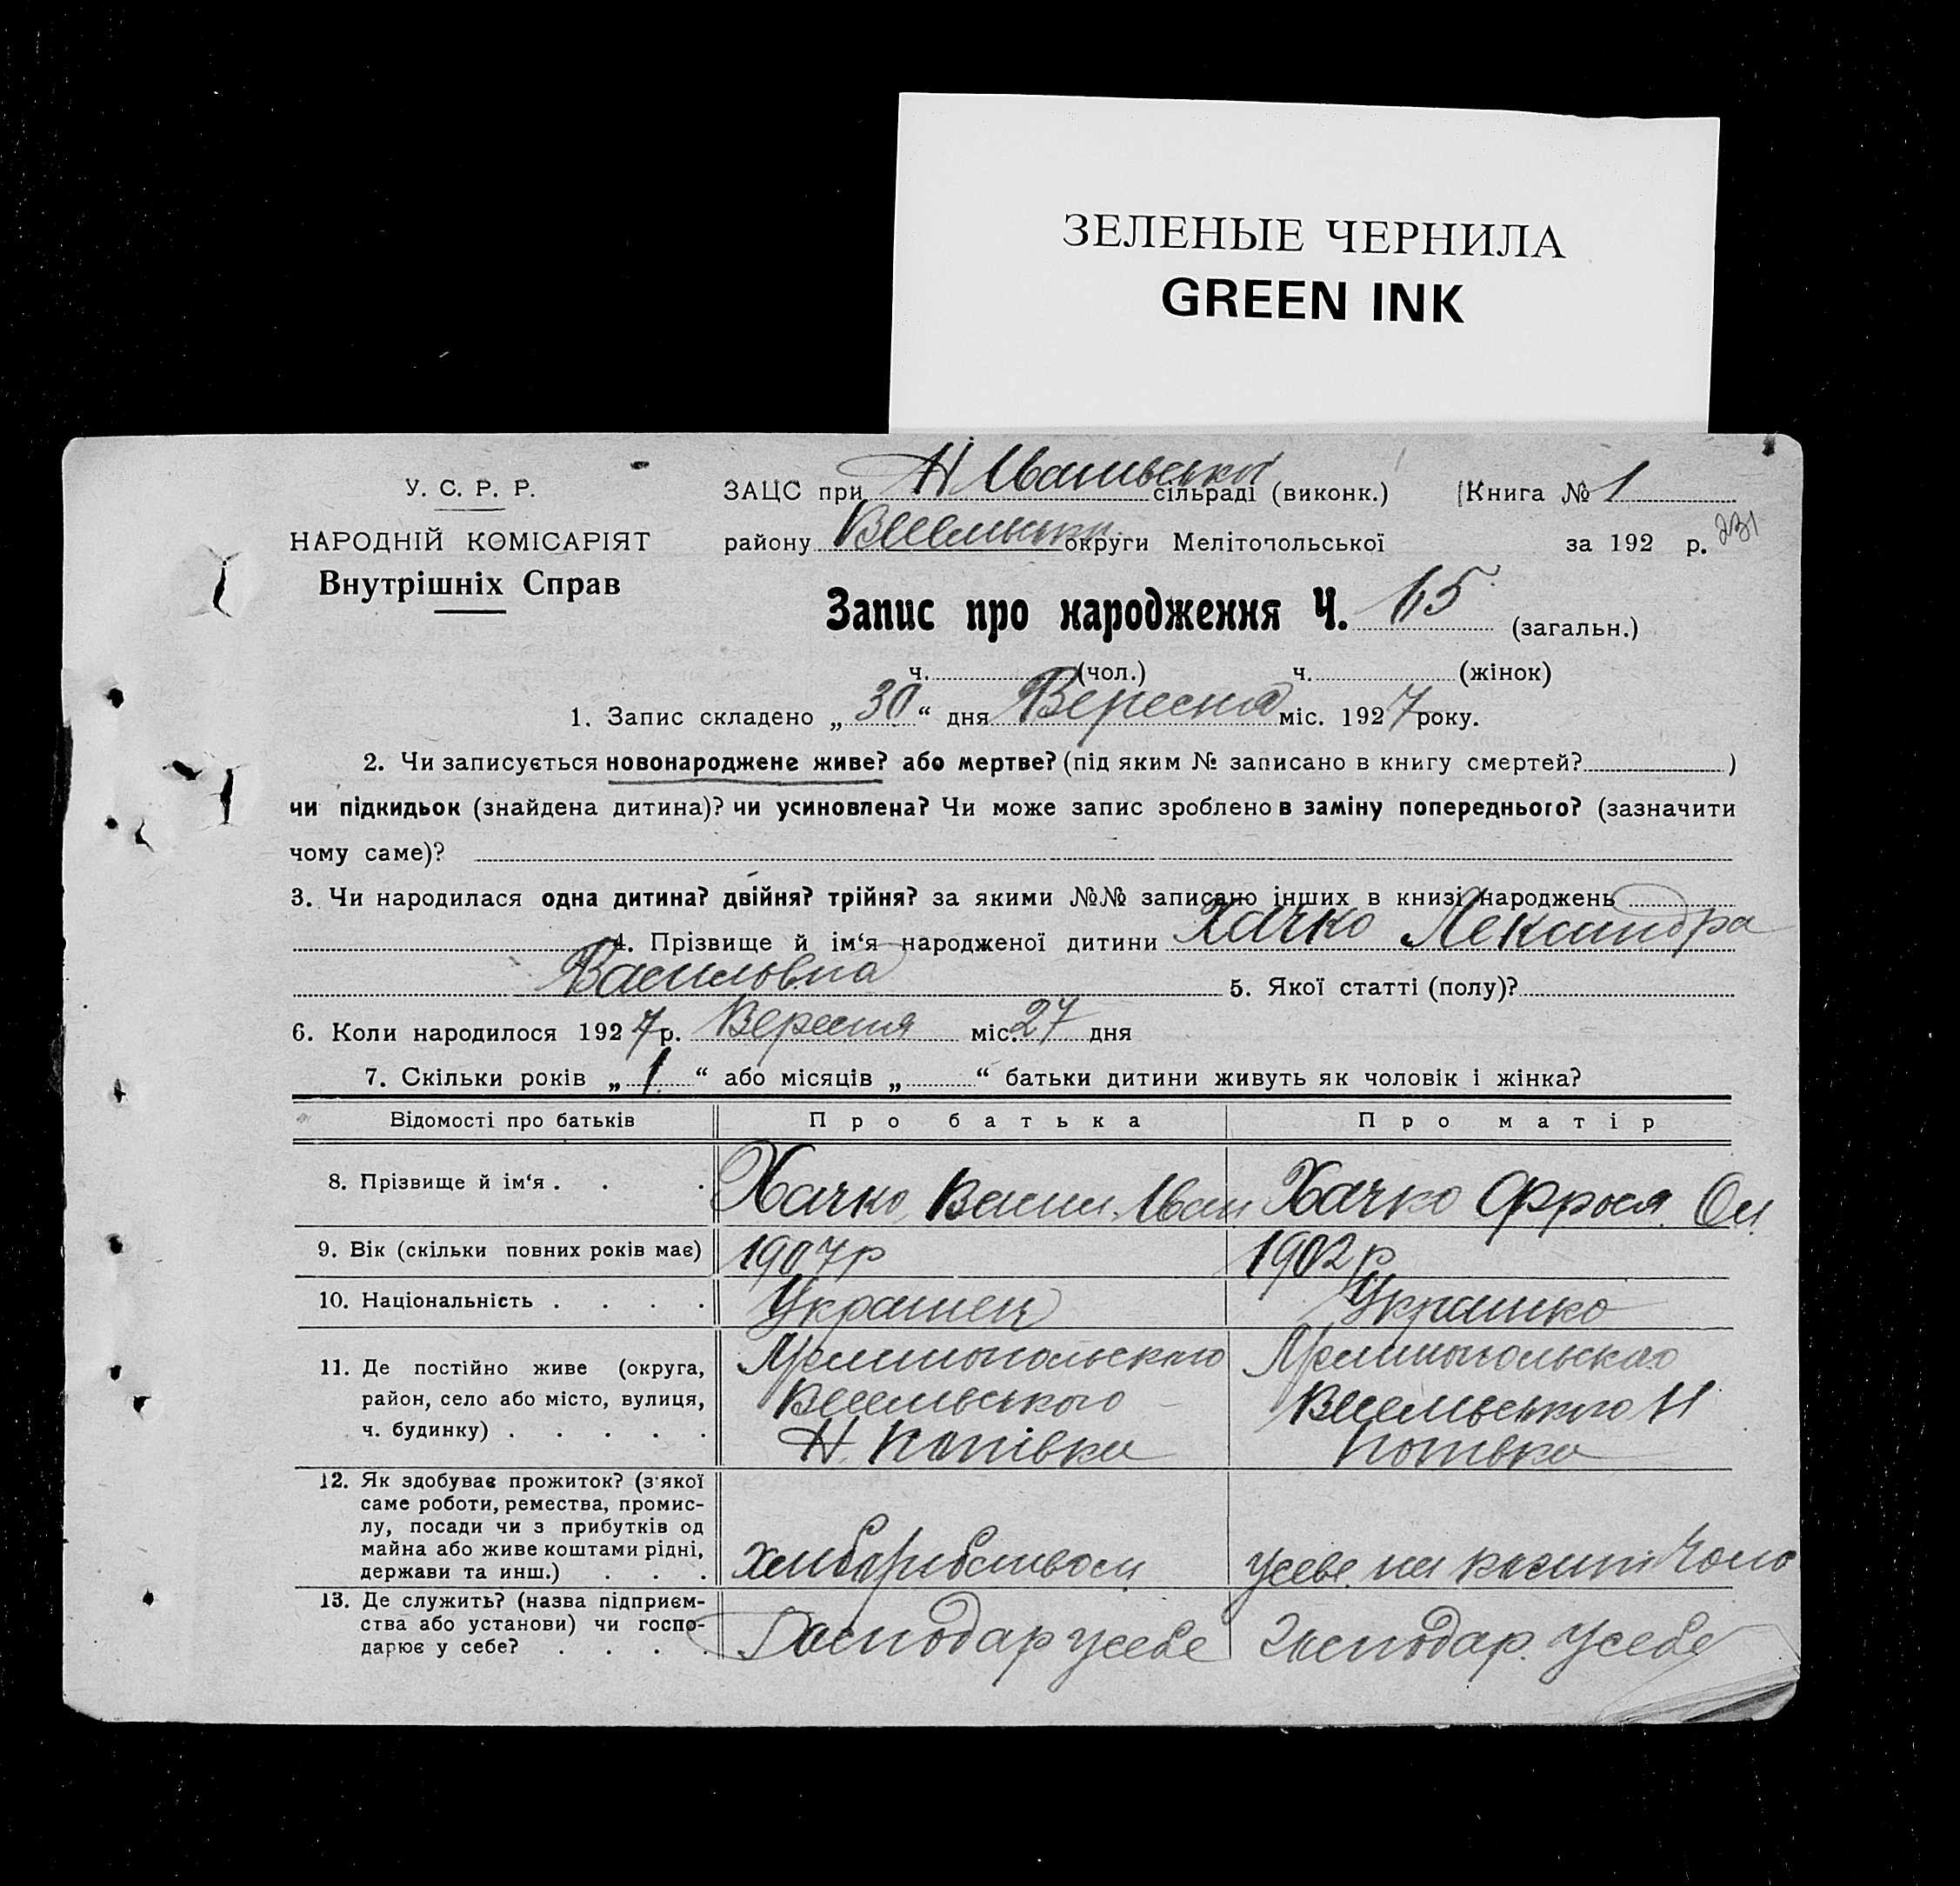 ЗЕЛЕНЫЕ ЧЕРНИЛА
GREEN INK
У. С. Р. Р.
НАРОДНІЙ КОМІСАРІЯТ
Внутрішніх Справ
ЗАЦС при Н Іванівській сільраді (виконк.) Книга № 1
району округи Мелітопольської за 192 р. 231
Запис про народження Ч. 65 (загальн.)
ч. (чол.) ч. (жінок)
1. Запис складено „ 30 “ дня Вересня міс. 1927 року.
2. Чи записується новонароджене живе? або мертве? (під яким № записано в книгу смертей? )
чи підкидьок (знайдена дитина)? чи усиновлена? Чи може запис зроблено в заміну попереднього? (зазначити
чому саме)?
3. Чи народилася одна дитина? двійня? трійня? за якими №№ записано інших в книзі народжень
4. Прізвище й ім‘я народженої дитини Хачко Лександра
Васильовна 5. Якої статті (полу)?
6. Коли народилося 1927 р. Вересня міс. 27 дня
7. Скільки років „ 1 “ або місяців „ “ батьки дитини живуть як чоловік і жінка?
Відомості про батьків Про батька Про матір
8. Прізвище й ім‘я . . . Хачко Васил. Іван Хачко Фрося Он
9. Вік (скільки повних років має) 1907р 1902р
10. Національність . . . . Украінец Украінко
11. Де постійно живе (округа,
район, село або місто, вулиця,
ч. будинку) . . . . .
Мелитопольского
Весельвського
Н. Попівка
Мелитопольскаго
Весельвського Н
Попівка
12. Як здобуває прожиток? (з якої
саме роботи, ремества, промис-
лу, посади чи з прибутків од
майна або живе коштами рідні,
держави та инш.) . . .
Хлибарибством
усебе на кошти Чоло
13. Де служить? (назва підприєм-
ства або установи) чи госпо-
дарює у себе? . . . .
Господар усебе
Господар. усебе